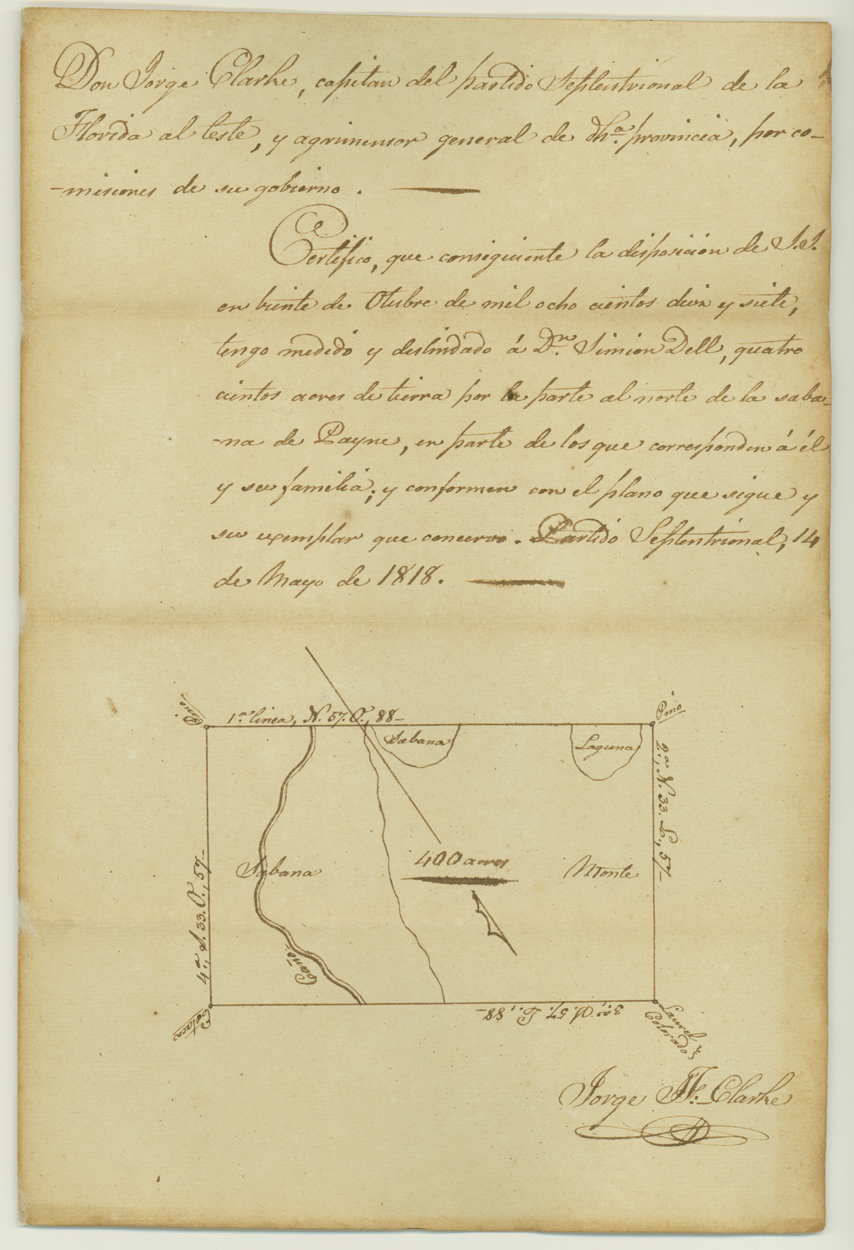 Don Jorge Clarke, capitan del partido Septentrional de la
Florida al leste, y agrimensor general de dha. provincia, por co-
-misiones de su gobierno.
Certifico, que consiguiente la disposicion de S.S.
en biente de Otubre de mil ocho cientos diez y siete,
tengo medido y deslindado á Dn. Simion Dell, quatro
cientos acres de tierra por la parte al norte de la saba-
-na de Payne, en parte de los que corresponden á él
y su familia; y conforman con el plano que sigue y
su exemplar que concervo. Partido Septentrional, 14
de Mayo de 1818.
Pino
1a. linea, N. 57. O., 88-
Pino
Sabana
Laguna
2a., N. 33. E., 57-
400 acres
Sabana
Monte
4a., S. 33. O., 57-
Caño
3a., S. 57. E., 88-
Laurel
Colorado
Jorge J. F. Clarke